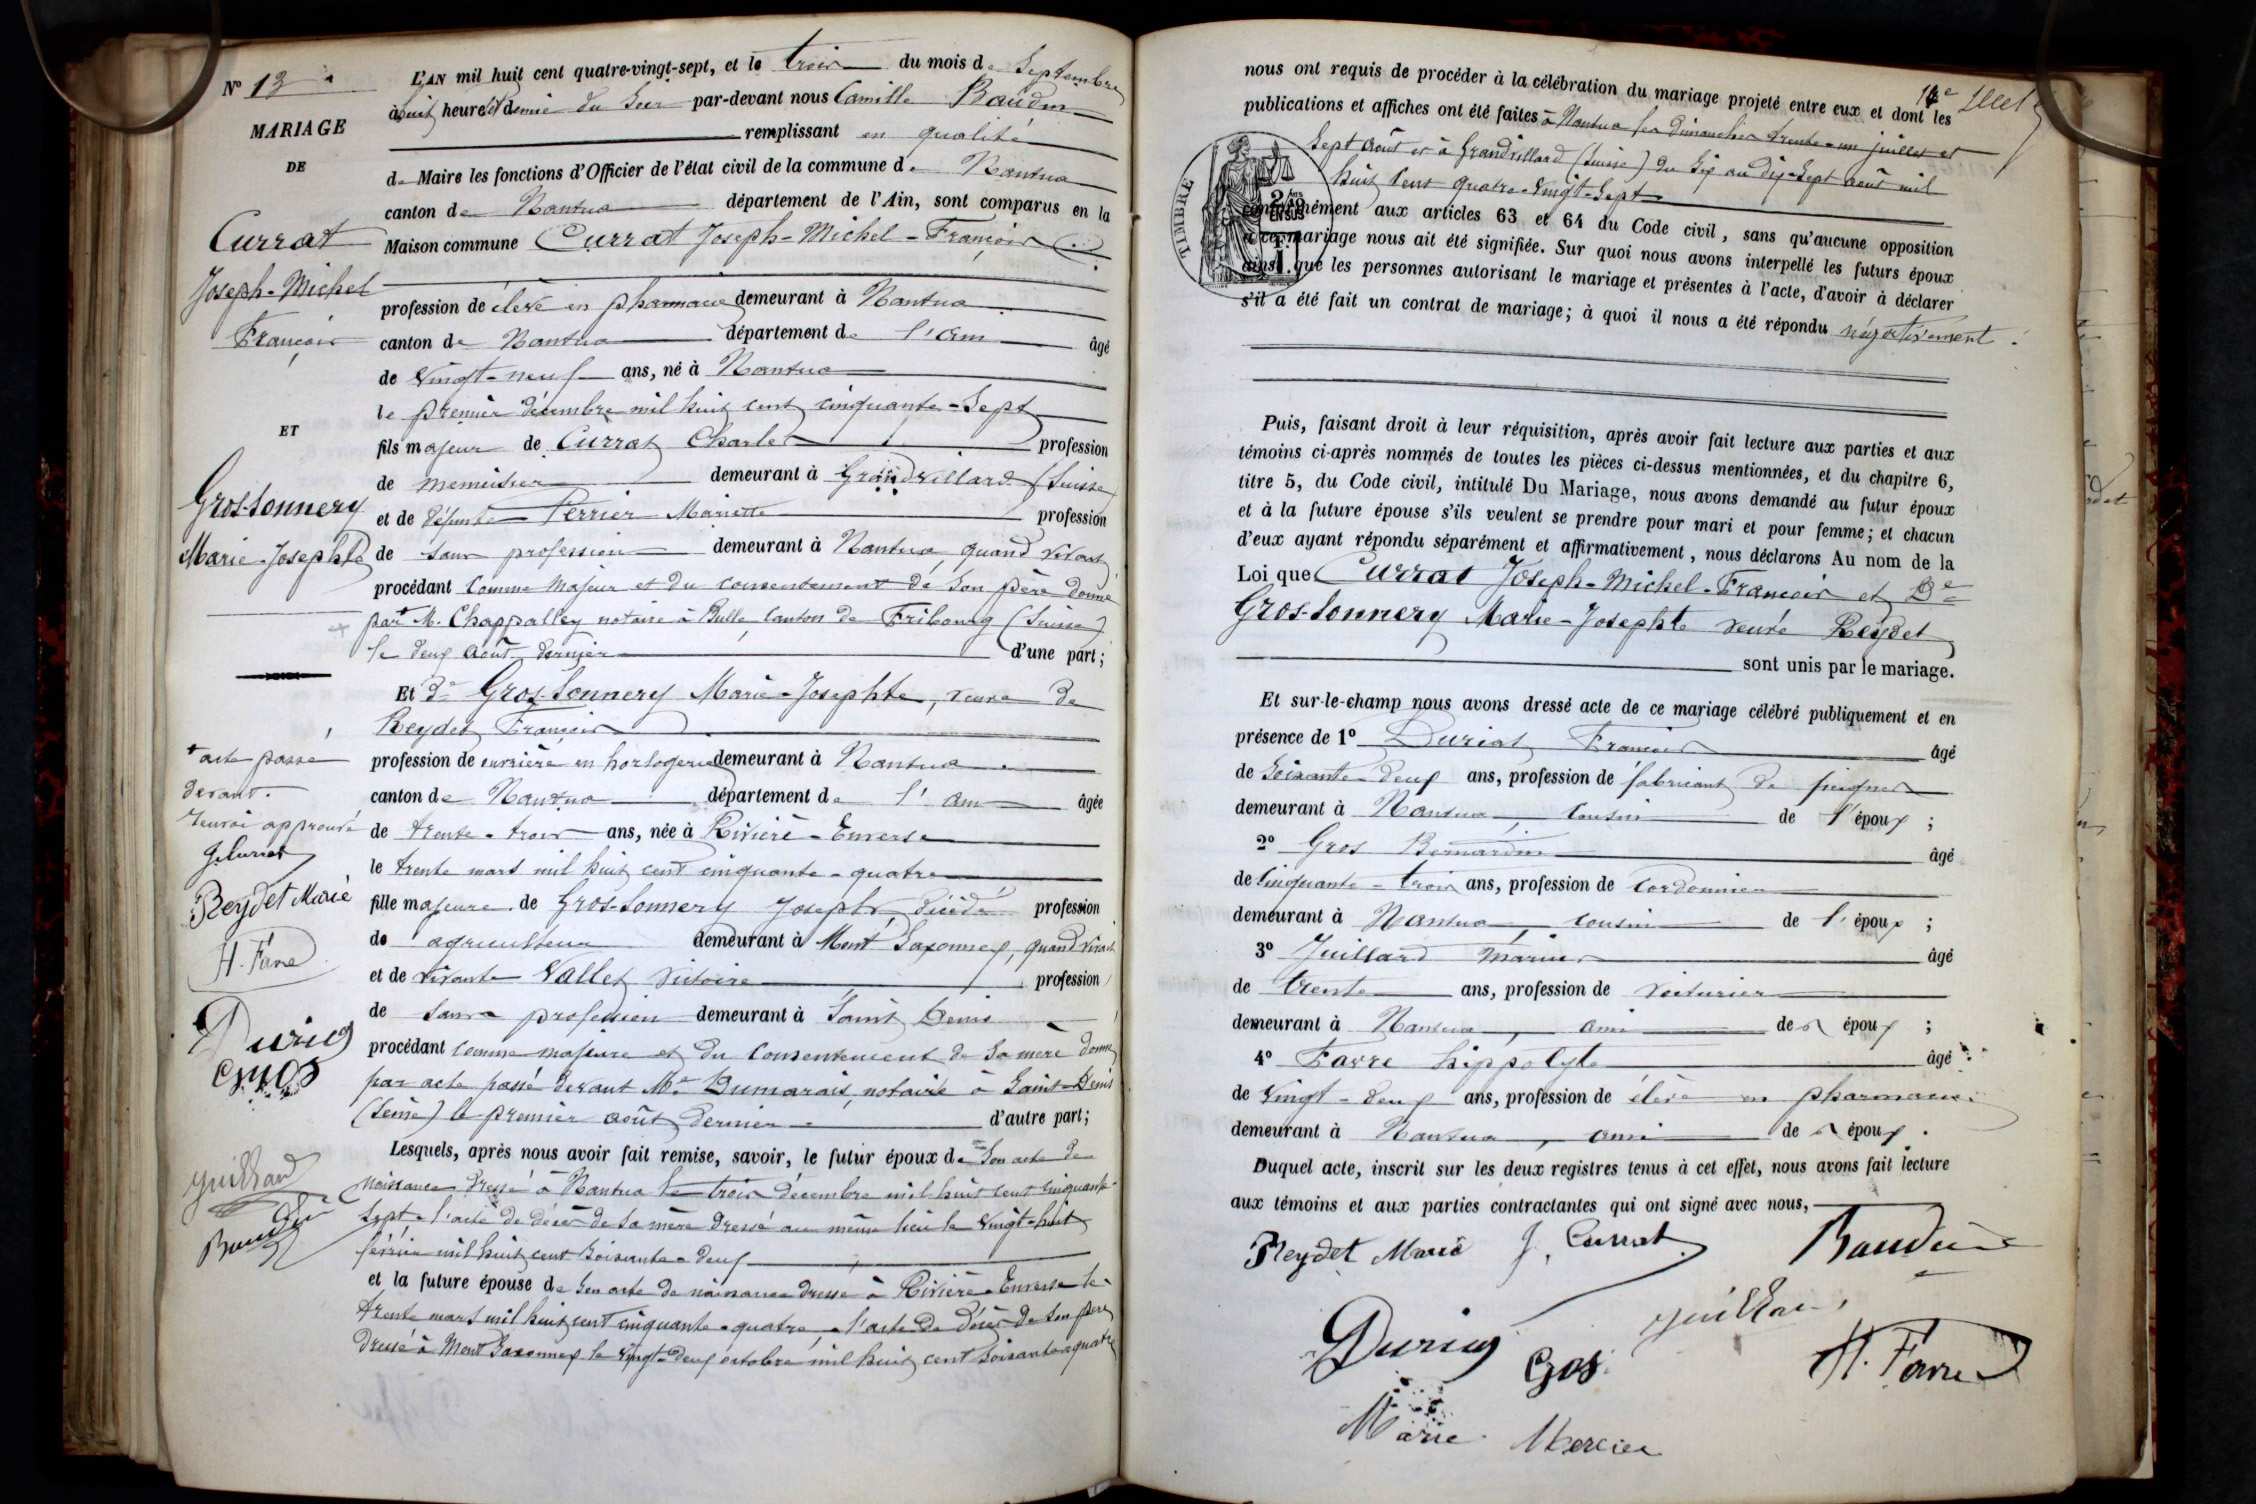 N° 13
MARIAGE
DE
Currat
Joseph-Michel
François
ET
Gros-Sonnery
Marie-Josephte
+ acte passé
devant.
renvoi approuvé
J. Currat
Reydet Marie
H. Favre
Duriat
Gros
Juillard
Baudin
L'AN mil huit cent quatre-vingt-sept, et le trois du mois de Septembre
à huit heures et demie du Soir par-devant nous Camille Baudin
remplissant en qualité
de Maire les fonctions d'Officier de l'état civil de la commune de Nantua
canton de Nantua département de l'Ain, sont comparus en la
Maison commune Currat Joseph-Michel-François
profession de élève en pharmacie demeurant à Nantua
canton de Nantua département de l'Ain âgé
de vingt-neuf ans, né à Nantua
le premier décembre mil huit cent cinquante-Sept
fils majeur de Currat Charles profession
de menuisier demeurant à Grandvillard (Suisse)
et de défunte Perrier Mariette profession
de sans profession demeurant à Nantua, quand vivait
procédant comme majeur et du consentement de Son père donné
par + M. Chappalley notaire à Bulle, canton de Fribourg (Suisse)
le deux Août dernier d'une part;
Et De Gros-Sonnery Marie-Josephte, veuve de
Reydet François
profession de ouvrière en horlogerie demeurant à Nantua
canton de Nantua département de l'Ain âgée
de trente-trois ans, née à Rivière-Enverse
le trente mars mil huit cent cinquante-quatre
fille majeure de Gros-Sonnery Joseph décédé profession
de agriculteur demeurant à Mont Saxonnex, quand vivait
et de vivante Vallet Victoire profession
de sans profession demeurant à Saint Denis
procédant comme majeure et du consentement de Sa mère donné
par acte passé devant Me Dumarais, notaire à Saint-Denis
(Seine) le premier août dernier d'autre part;
Lesquels, après nous avoir fait remise, savoir, le futur époux de Son acte de
naissance dressé à Nantua le trois décembre mil huit cent cinquante-
Sept - l'acte de décès de Sa mère dressé au même lieu le vingt-huit
février mil huit cent Soixante-deux
et la future épouse de Son acte de naissance dressé à Rivière-Enverse le
trente mars mil huit cent cinquante-quatre - l'acte de décès de Son père
dressé à Mont Saxonnex le vingt-deux octobre mil huit cent soixante-quatre
nous ont requis de procéder à la célébration du mariage projeté entre eux et dont les
publications et affiches ont été faites à Nantua les dimanches trente-un juillet et
Sept Août et à Grandvillard (Suisse) du Six au dix-Sept août mil
huit cent quatre-vingt-Sept
TIMBRE
conformément aux articles 63 et 64 du Code civil, sans qu'aucune opposition
à ce mariage nous ait été signifiée. Sur quoi nous avons interpellé les futurs époux
ainsi que les personnes autorisant le mariage et présentes à l'acte, d'avoir à déclarer
s'il a été fait un contrat de mariage; à quoi il nous a été répondu négativement.
Puis, faisant droit à leur réquisition, après avoir fait lecture aux parties et aux
témoins ci-après nommés de toutes les pièces ci-dessus mentionnées, et du chapitre 6,
titre 5, du Code civil, intitulé Du Mariage, nous avons demandé au futur époux
et à la future épouse s'ils veulent se prendre pour mari et pour femme; et chacun
d'eux ayant répondu séparément et affirmativement, nous déclarons Au nom de la
Loi que Currat Joseph-Michel-François et De
Gros-Sonnery Marie-Josephte veuve Reydet
sont unis par le mariage.
Et sur-le-champ nous avons dressé acte de ce mariage célébré publiquement et en
présence de 1° Duriat François âgé
de Soixante-deux ans, profession de fabricant de peignes
demeurant à Nantua, cousin de l'époux;
2° Gros Bernardin âgé
de cinquante-trois ans, profession de cordonnier
demeurant à Nantua, cousin de l'époux;
3° Juillard Marius âgé
de trente ans, profession de voiturier
demeurant à Nantua, ami des époux;
4° Favre hippolyte âgé
de vingt-deux ans, profession de élève en pharmacie
demeurant à Nantua, ami des époux.
Duquel acte, inscrit sur les deux registres tenus à cet effet, nous avons fait lecture
aux témoins et aux parties contractantes qui ont signé avec nous,
Reydet Marie J. Currat Baudin
Duriat Gros Juillard H. Favre
Marie Mercier